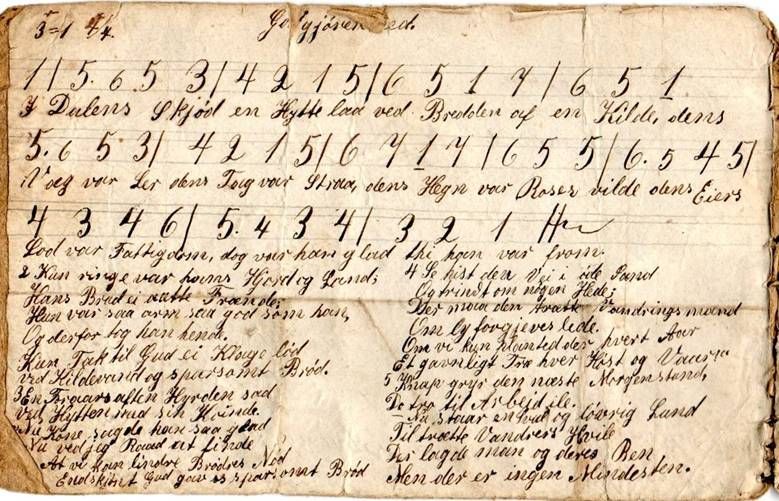 3=1 4/4 Godgjørenhed.
1 | 5. 6 5 3 | 4 2 1 5 | 6 5 1 7 | 6 5 1
I Dalens Skjød en Hytte laa ved Bredden af en Kilde, dens
5. 6 5 3 | 4 2 1 5 | 6 7 1 7 | 6 5 5 | 6. 5 4 5 |
Væg var Ler dens Tag var Straa, dens Hegn var Roser vilde dens Eiers
4 3 4 6 | 5. 4 3 4 | 3 2 1
Lod var Fattigdom, dog var han glad thi han var from.
2 Kun ringe var hans Hjord og Land;
Hans Brød ei mætte Frænde;
Hun var saa arm saa god som han,
Og derfor tog han hende.
Kun Tak til Gud ei Klage lød
ved Kildevand og sparsomt Brød.
3 En Vaaraften Hyrden sad
ved Hytten med sin Kvinde.
Kone, sagde han saa glad
Nu ved jeg Raad at finde
At vi kan lindre Brødres Nød
Endskjønt Gud gav os sparsomt Brød
4 Se hist den Vei i øde Sand
Og trindt om nøgen Hede;
Der maa den træt Vandringsmand
Om Ly forgjæves lede.
Om vi kun planted der hvert Aar
Et gavnligt Træ hver Høst og Vaar
5 Knap gryr den næste Morgenstund,
De tro til Arbeid ile.
Nu staar en hvid og løvrig Lund
Til trætte Vandrers Hvile
Før lagde man og deres Ben
Men der er ingen Mindesten.